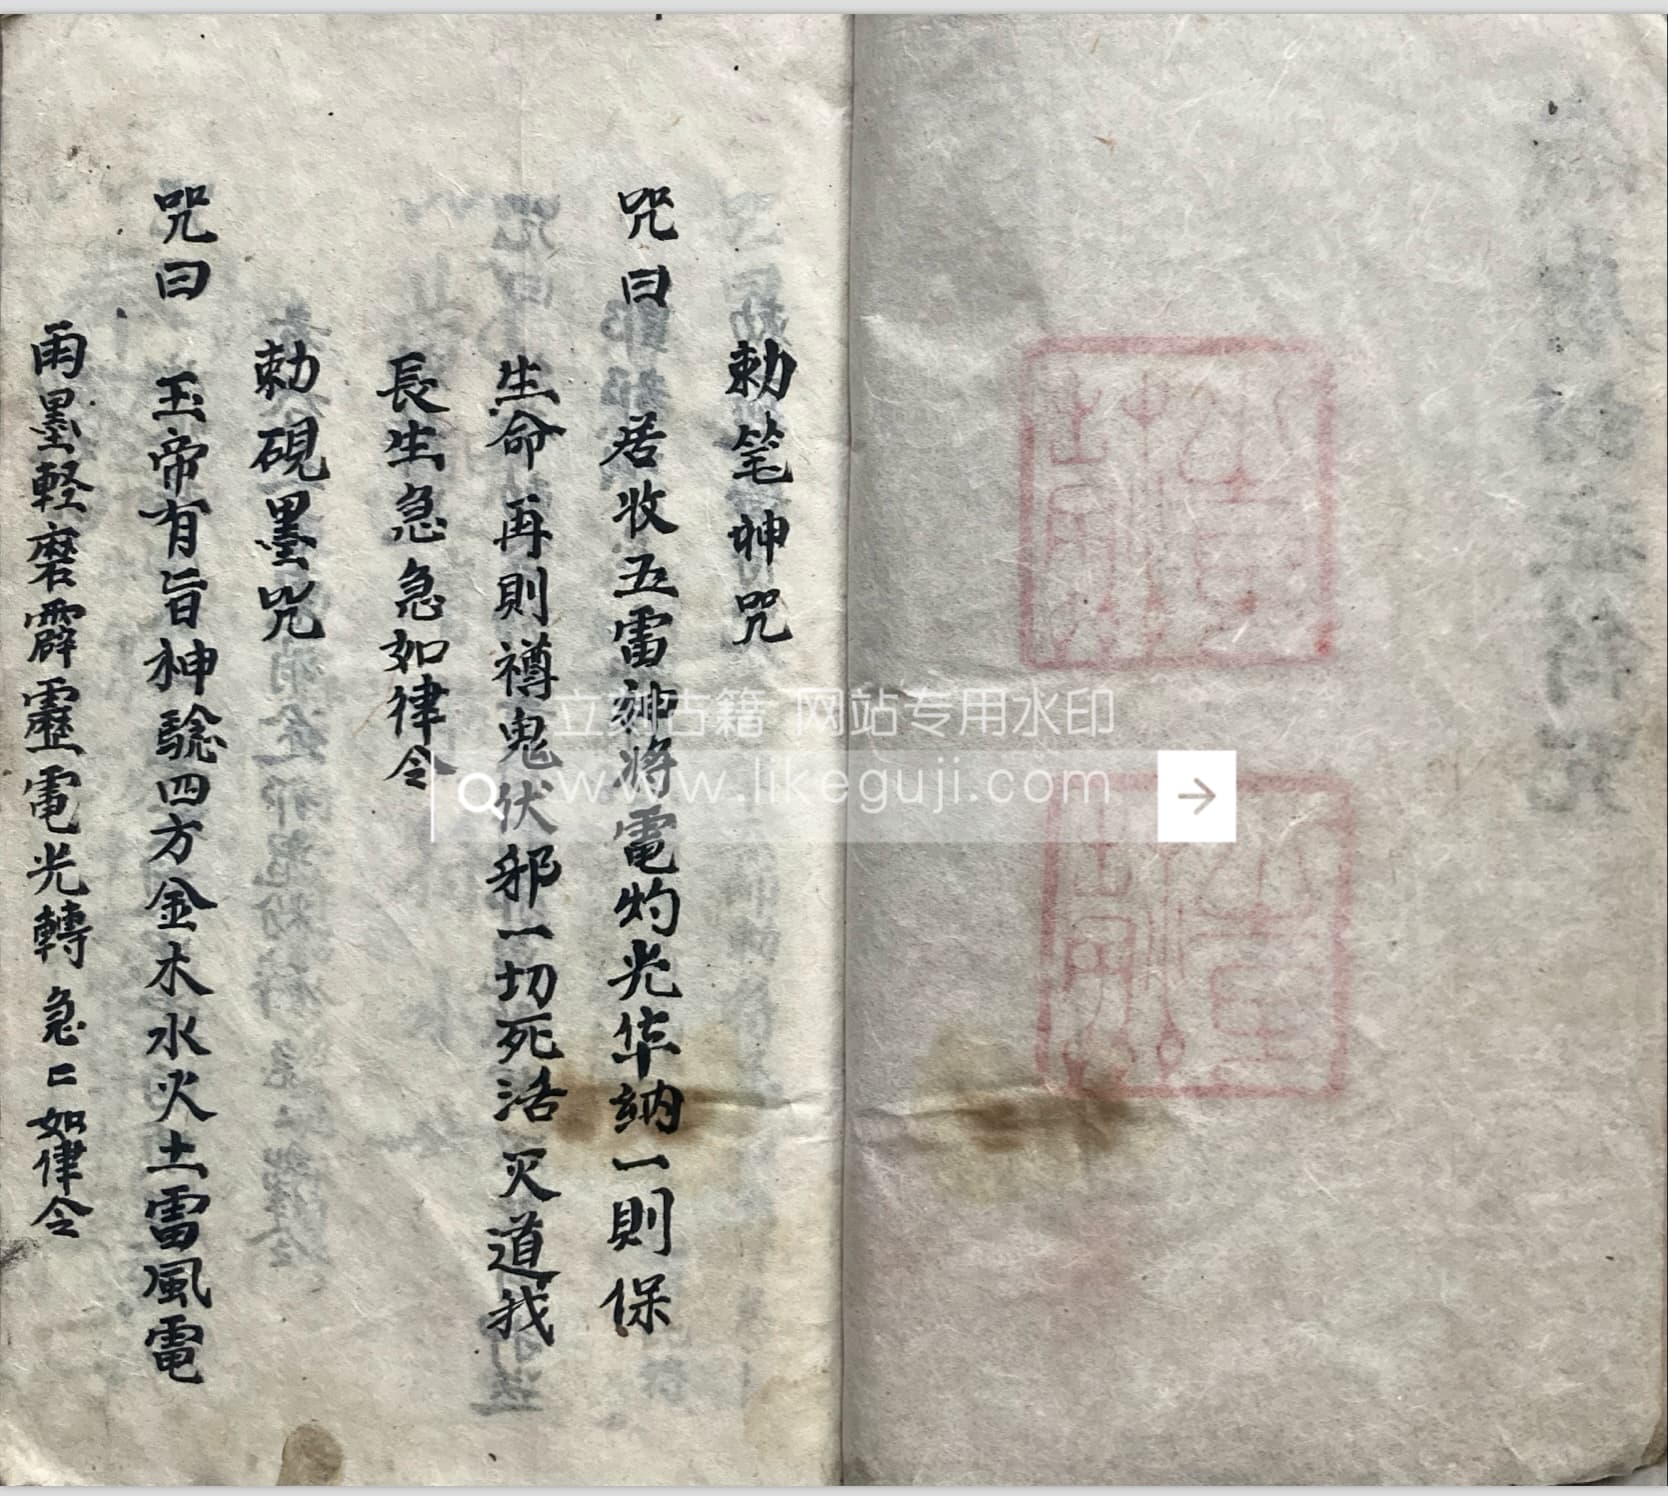 勅笔神咒
咒曰 居收五雷神将電灼光华納一則保
生命再則禣鬼伏邪一切死活灭道我
長生急急如律令
勅硯墨咒
咒曰 玉帝有旨神騐四方金木水火土雷風電
雨墨軽磨霹靂電光轉急二如律令
立刻古籍 网站专用水印
www.likeguji.com